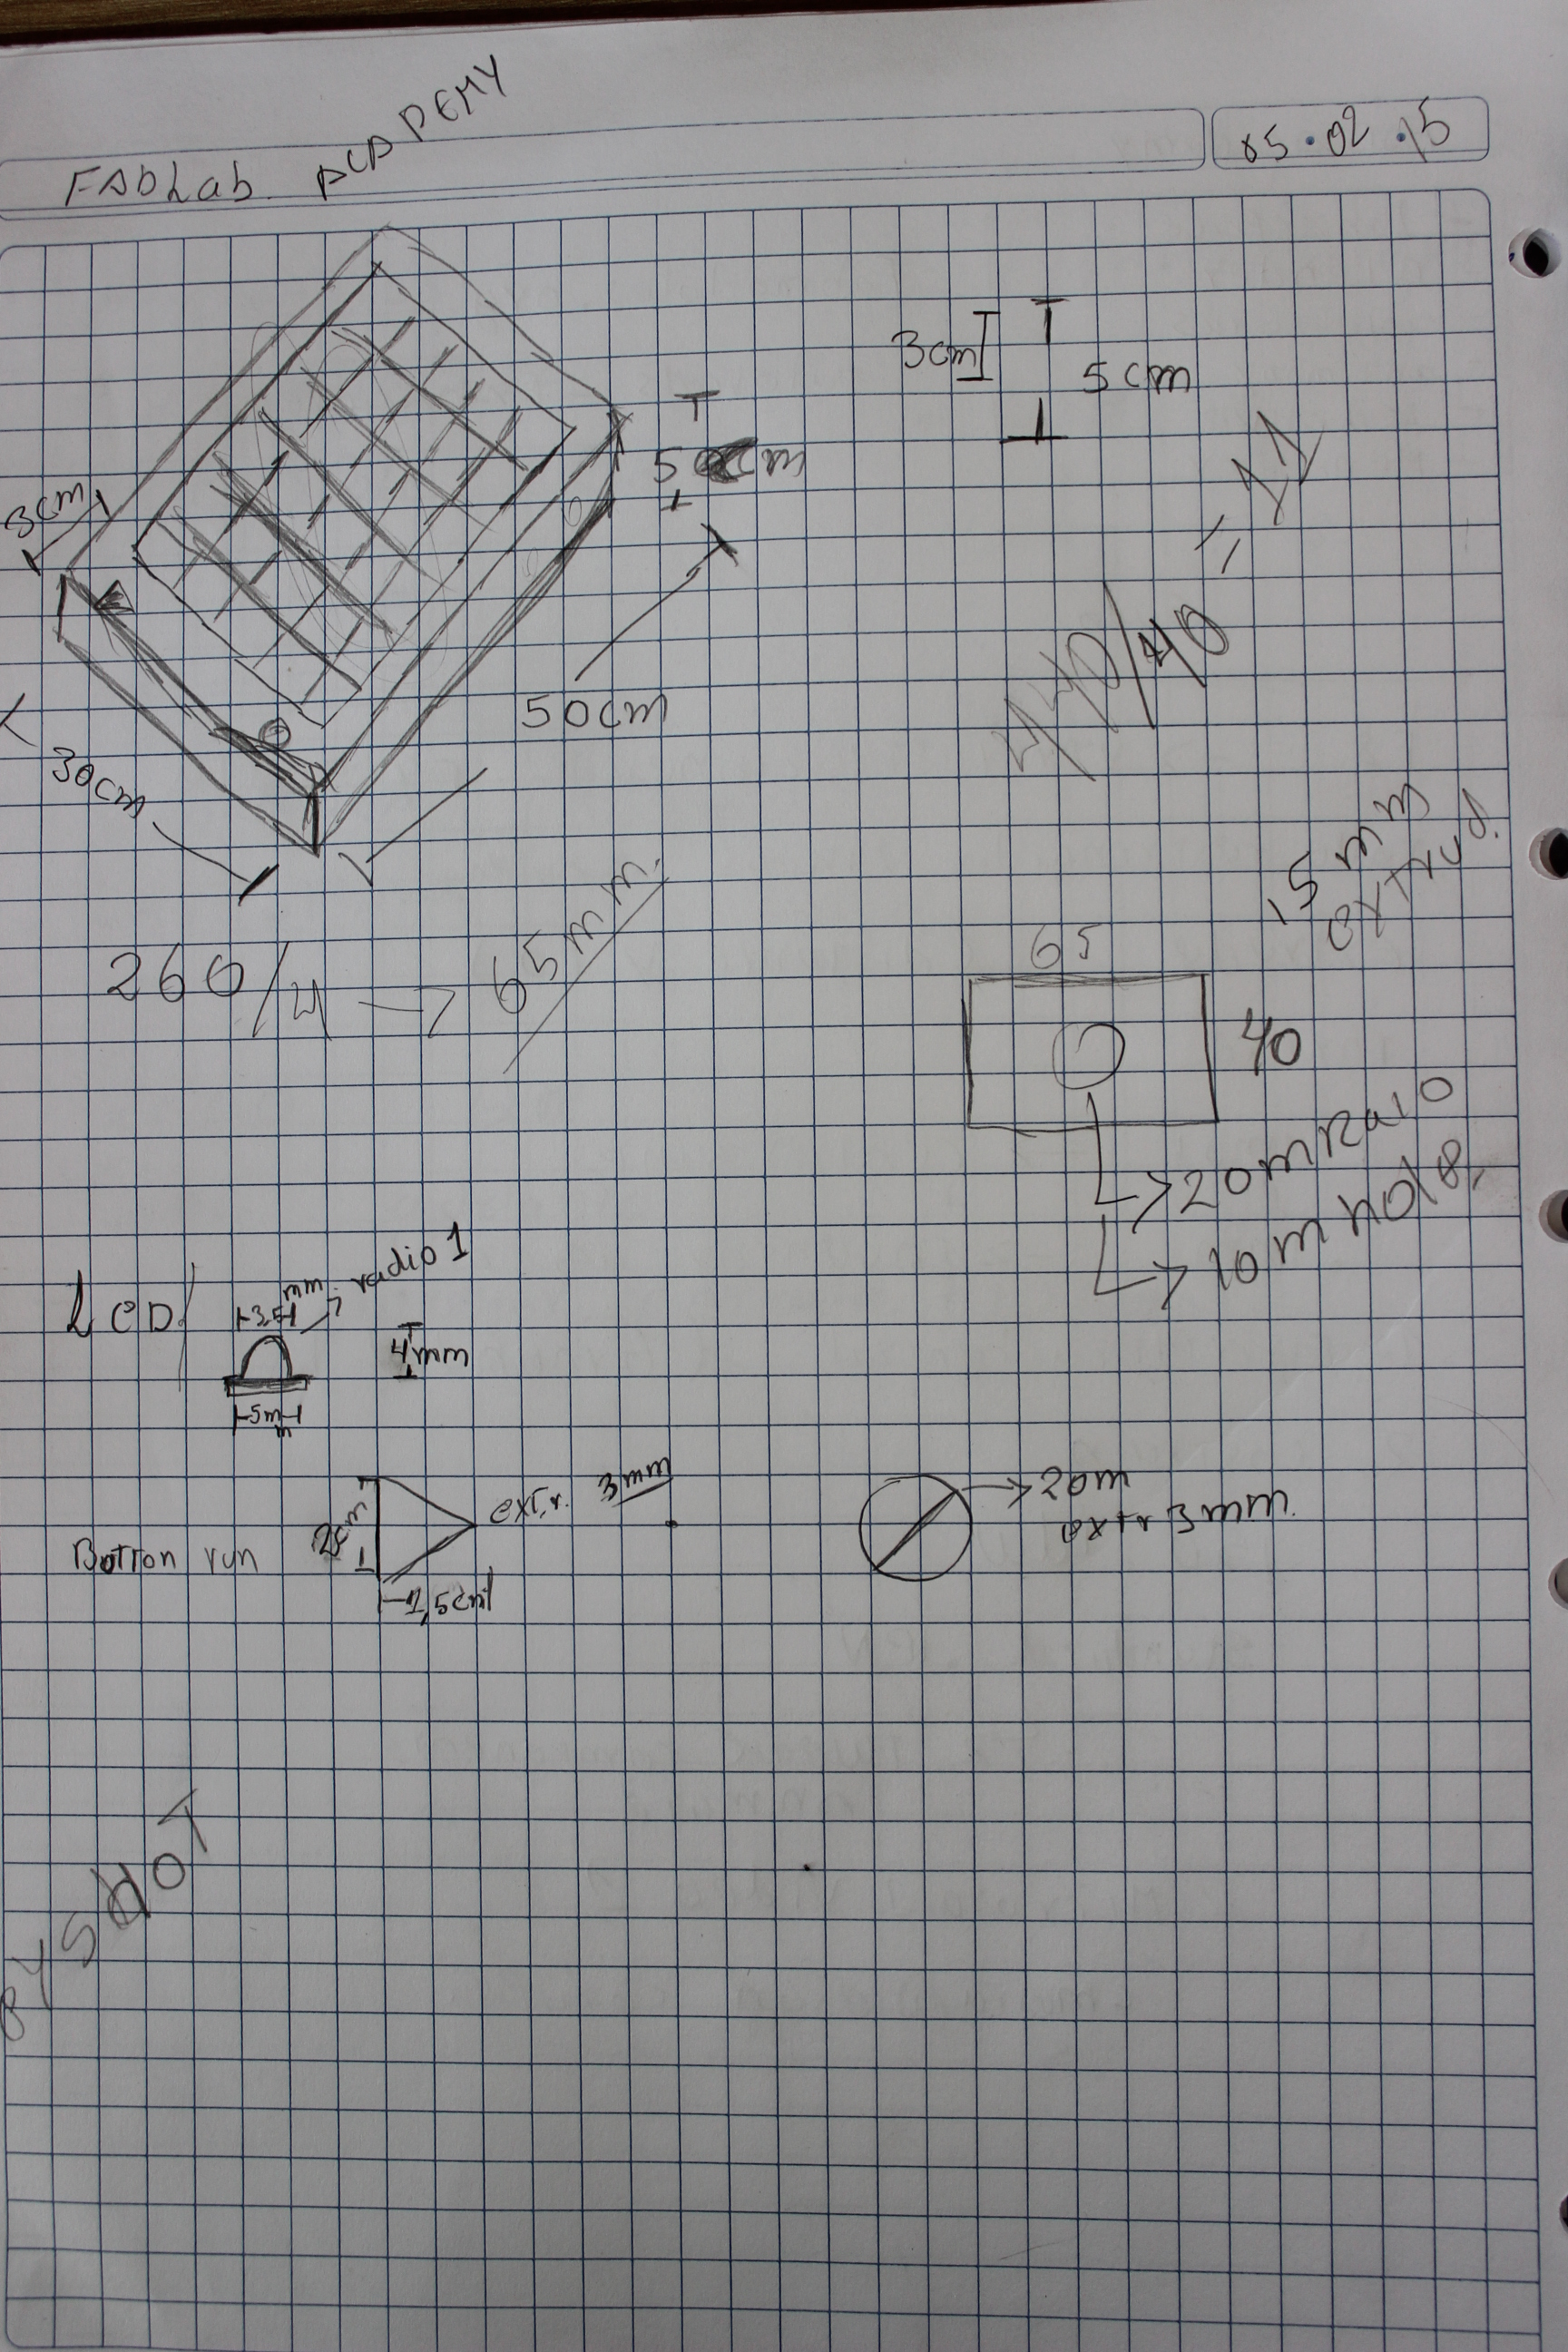 FabLab ACADEMY
05.02.15
3cm
5cm
5cm
3cm
50cm
30cm
440/40 = 11
260/4 → 65mm.
15mm
extrud.
65
40
→ 20m Raio
→ 10m hole.
LeD/
mm → radio 1
4mm
5mm
Botton run
2cm
1,5cm
extr. 3mm
→ 20m
extr 3mm.
PYSHOT